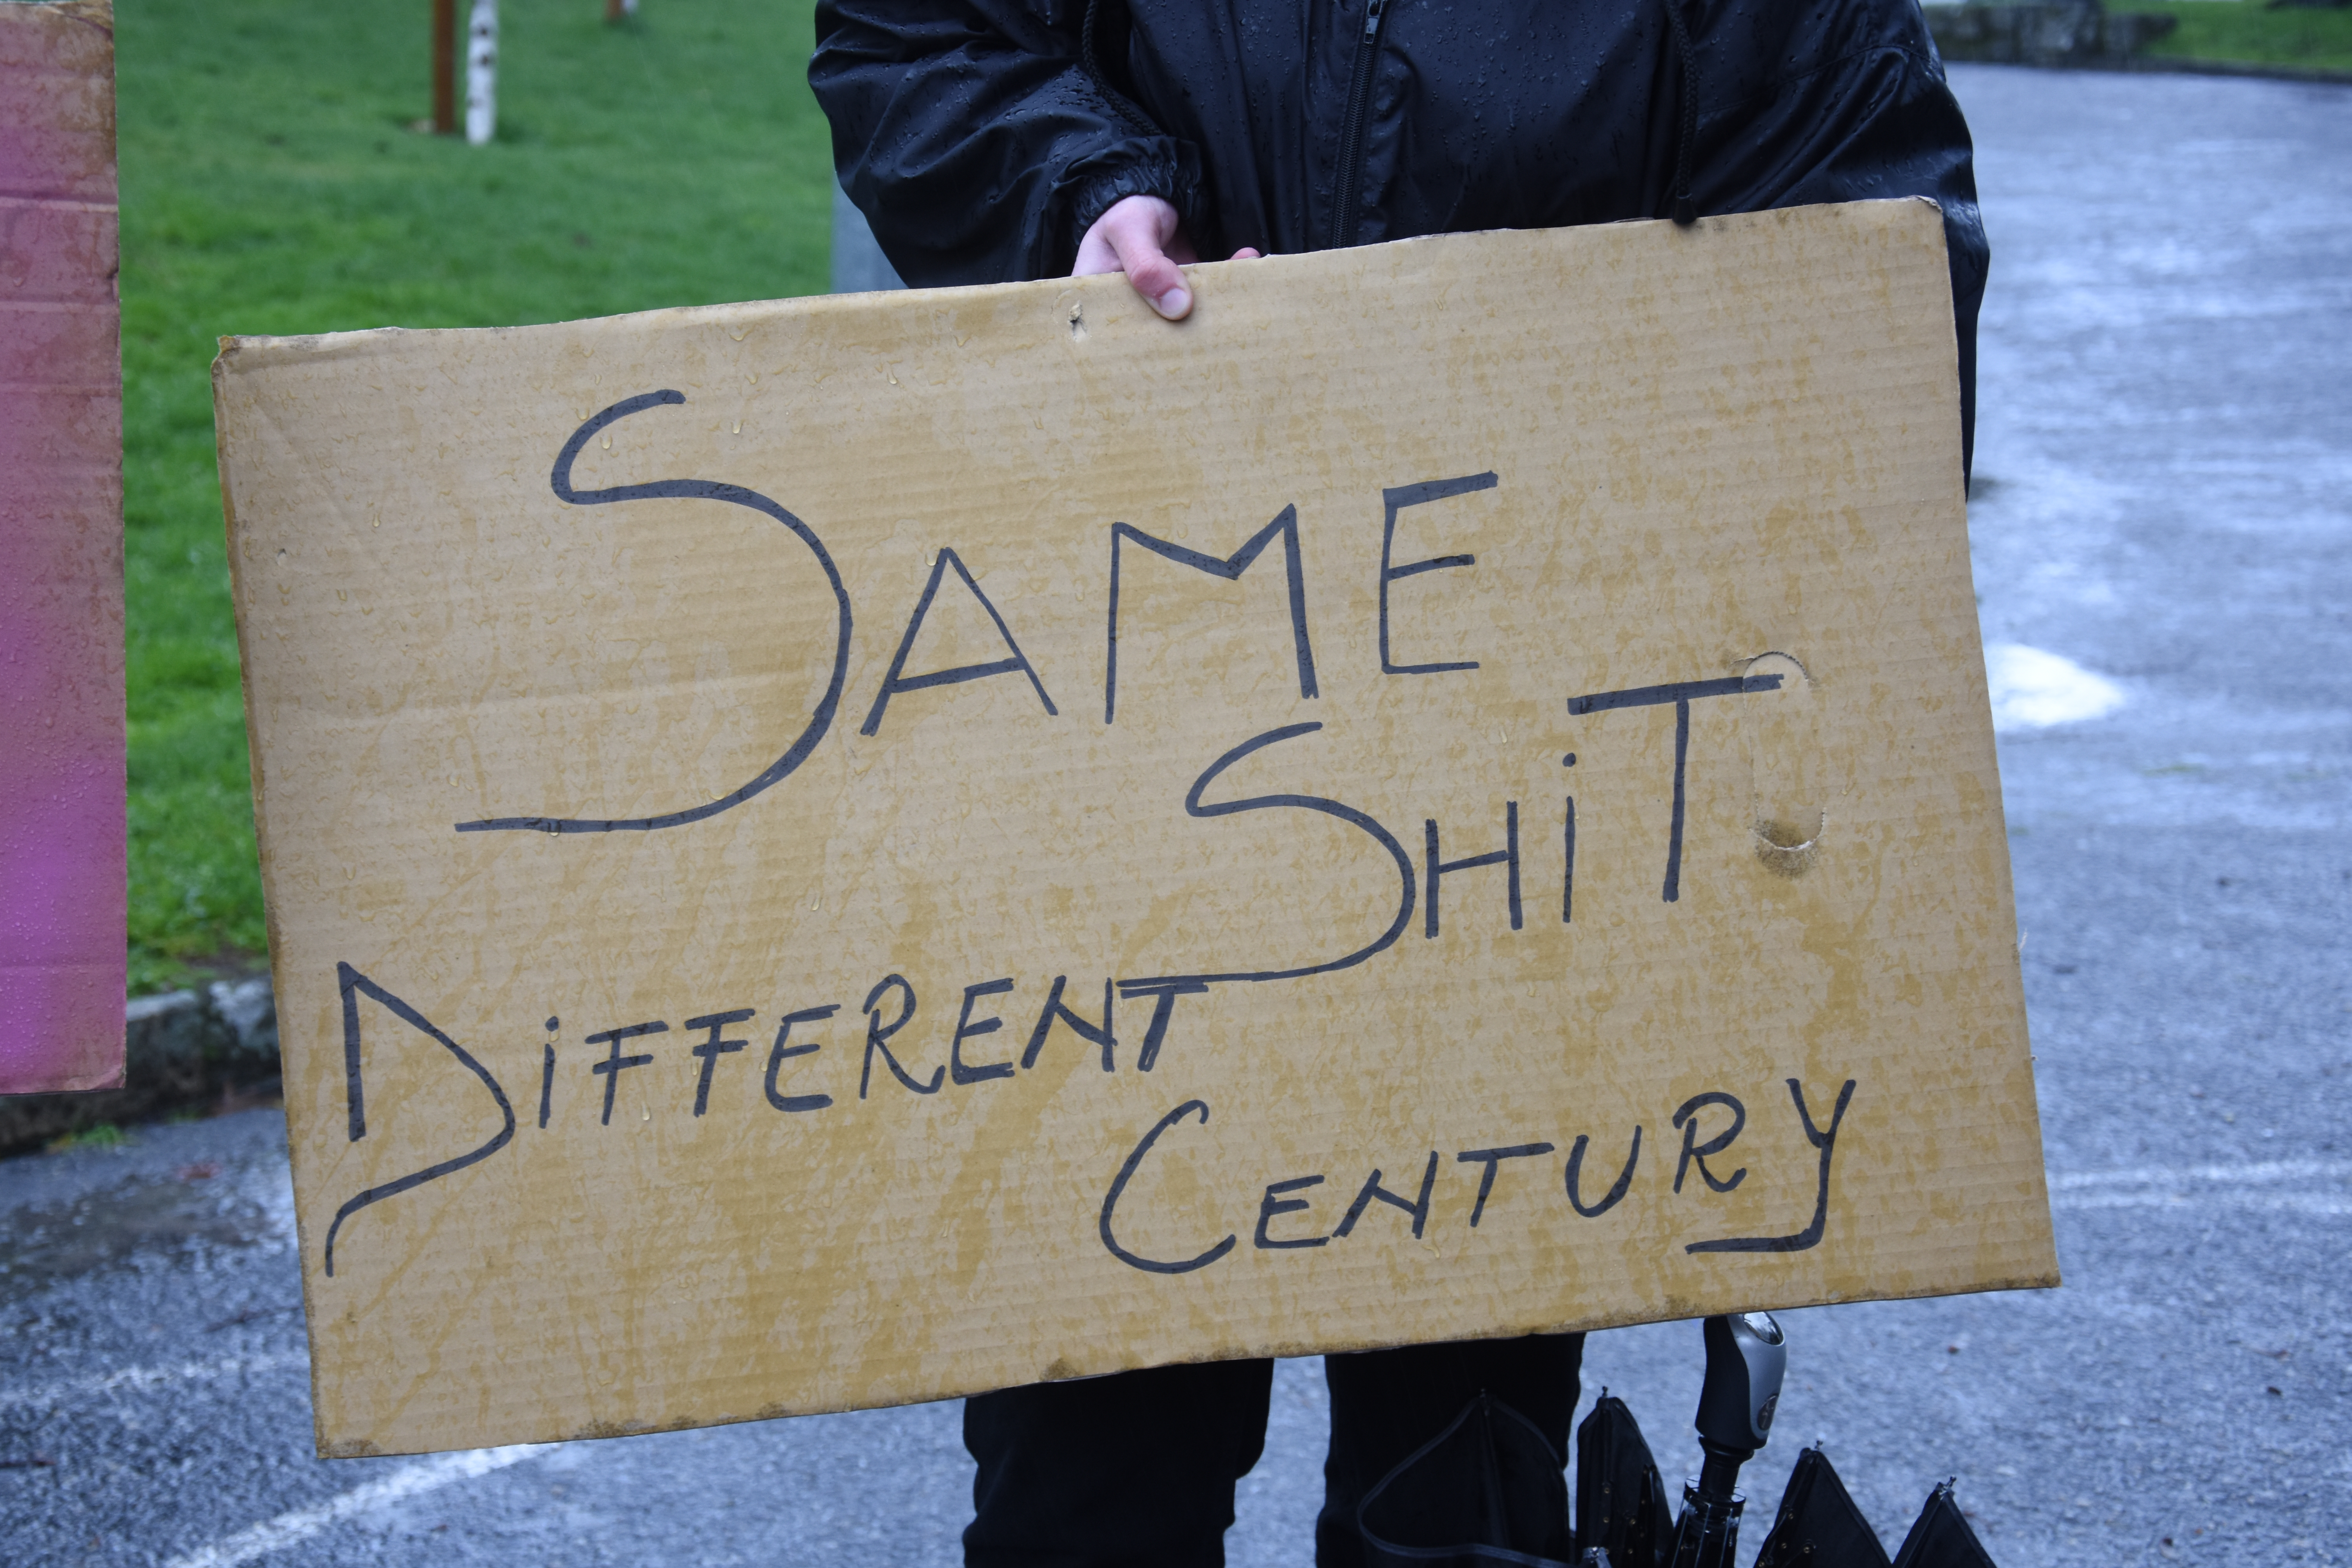 SAME
SHiT
DiFFERENT
CENTURY